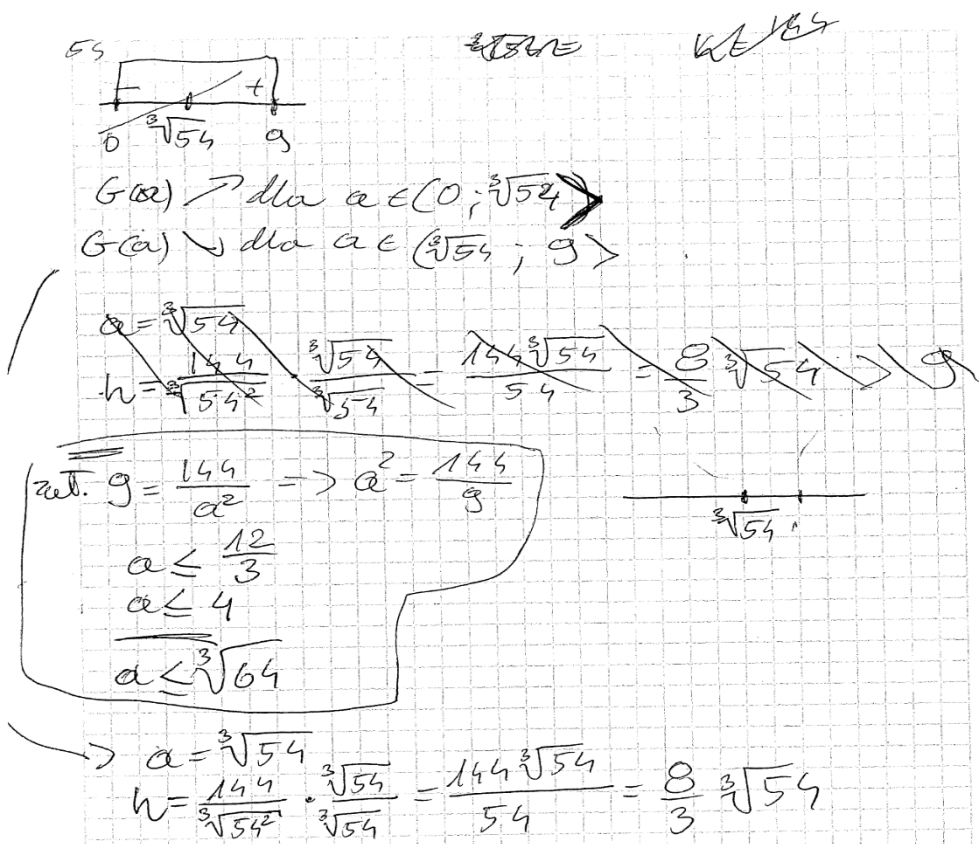 54
- +
0 ∛54 9
G(a) ↗ dla a ∈ (0 ; ∛54>
G(a) ↘ dla a ∈ (∛54 ; 9>
a = ∛54
h = 144/∛54² · ∛54/∛54 = 144∛54/54 = 8/3 ∛54 > 9
zał. 9 = 144/a² => a² = 144/9
∛54
a ≤ 12/3
a ≤ 4
a ≤ ∛64
-> a = ∛54
h = 144/∛54² · ∛54/∛54 = 144∛54/54 = 8/3 ∛54